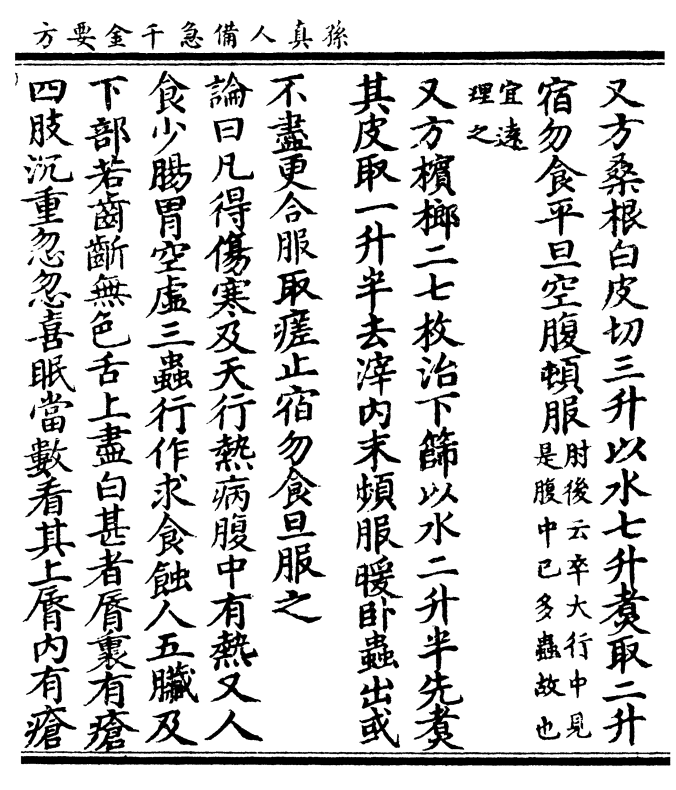 孫真人備急千金要方
又方桑根白皮切三升以水七升煑取二升
宿勿食平旦空腹頓服肘後云卒大行中見是腹中已多蟲故也
宜速理之
又方檳榔二七枚治下篩以水二升半先煑
其皮取一升半去滓内末頓服暖卧蟲出或
不盡更合服取瘥止宿勿食旦服之
論曰凡得傷寒及天行熱病腹中有熱又人
食少腸胃空虚三蟲行作求食蝕人五臟及
下部若齒齗無色舌上盡白甚者脣裏有瘡
四肢沉重忽忽喜眠當數看其上脣内有瘡